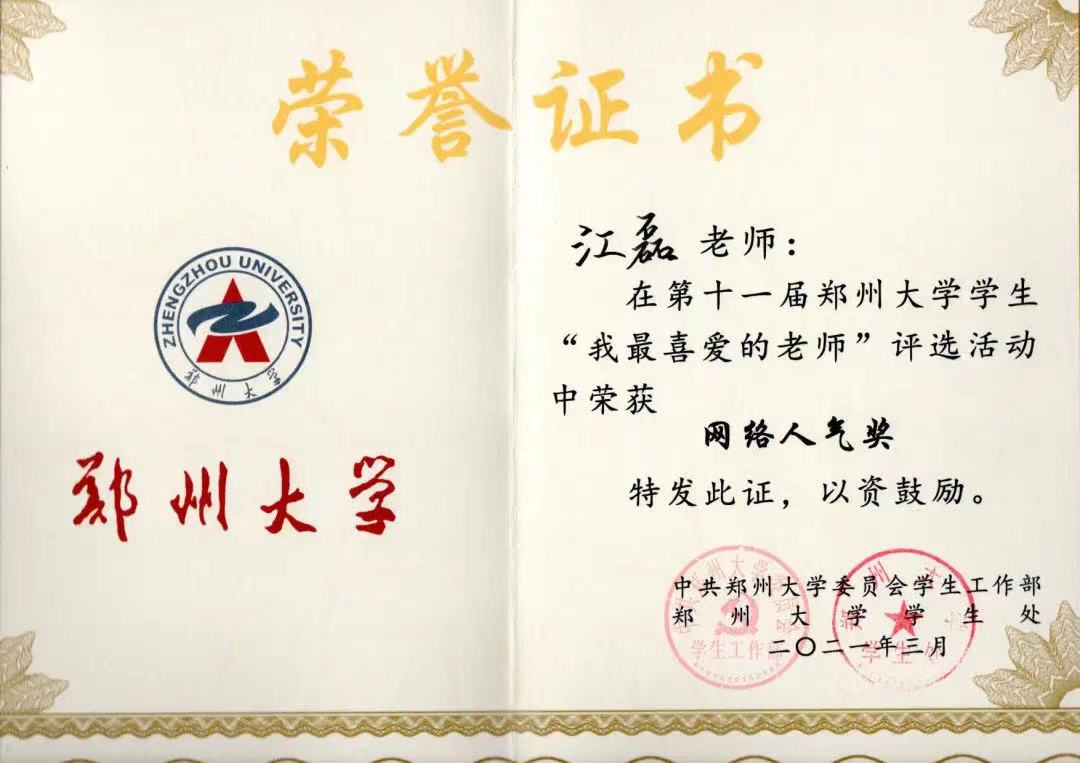 荣誉证书
ZHENGZHOU UNIVERSITY
郑州大学
郑州大学
江磊 老师：
在第十一届郑州大学学生
“我最喜爱的老师”评选活动
中荣获
网络人气奖
特发此证，以资鼓励。
中共郑州大学委员会学生工作部
郑州大学学生处
二〇二一年三月
中共郑州大学委员会
学生工作部
郑州大学
学生处